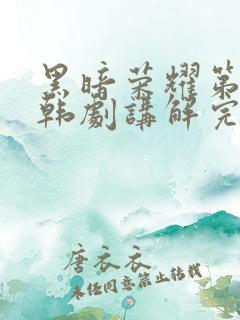 黑暗荣耀第
韩劇講解完
唐衣衣
未经同意禁止转载